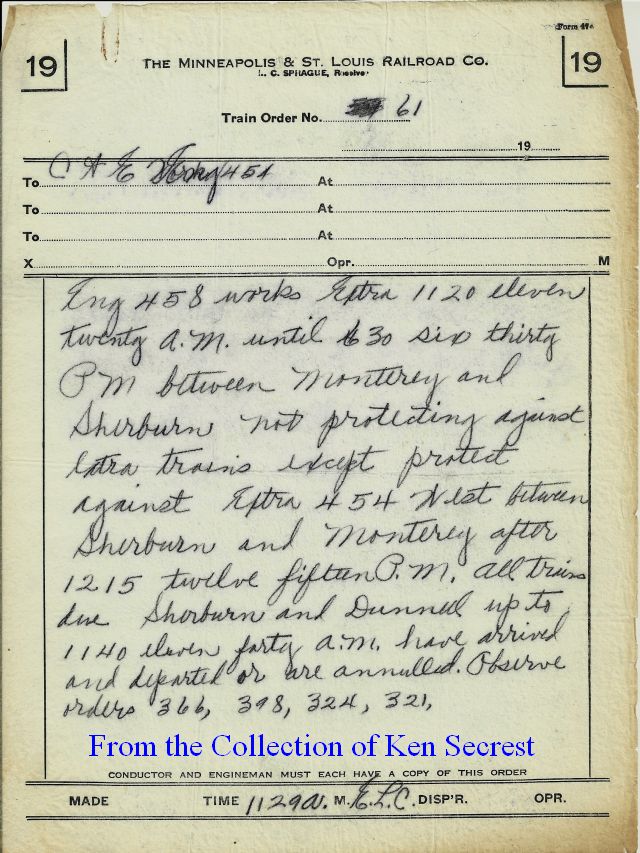 Form 47
19
THE MINNEAPOLIS & ST. LOUIS RAILROAD CO.
19
L. C. SPRAGUE, Receiver
Train Order No. 61
19
To C & E Work 458 At
To At
To At
X Opr. M
Eng 458 works Extra 1120 eleven
twenty A.M. until 630 six thirty
PM between Monterey and
Sherburn not protecting against
Extra trains except protect
against Extra 454 West between
Sherburn and Monterey after
1215 twelve fifteen P.M. All trains
due Sherburn and Dunnell up to
1140 eleven forty a.m. have arrived
and departed or are annulled. Observe
orders 366, 398, 324, 321,
From the Collection of Ken Secrest
CONDUCTOR AND ENGINEMAN MUST EACH HAVE A COPY OF THIS ORDER
MADE TIME 1129 a. M. E.L.C. DISP'R. OPR.